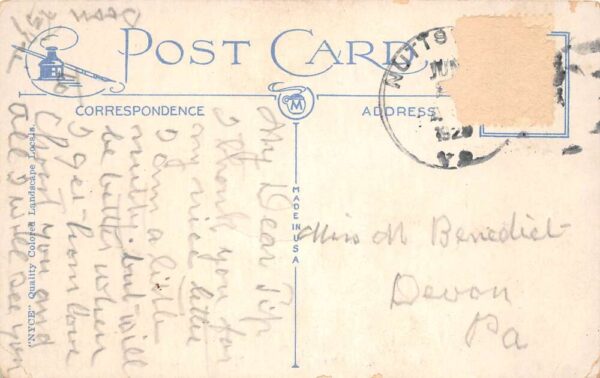 POST CARD
CORRESPONDENCE
ADDRESS
M
MADE IN U.S.A.
"NYCE" Quality Colored Landscape Locals.
NUTTS
JUN
My Dear Pip
I thank you for
my nice
I am a little
but will
be better when
I get home love
you and
all will see you
soon
Miss M Benedict
Devon
Pa